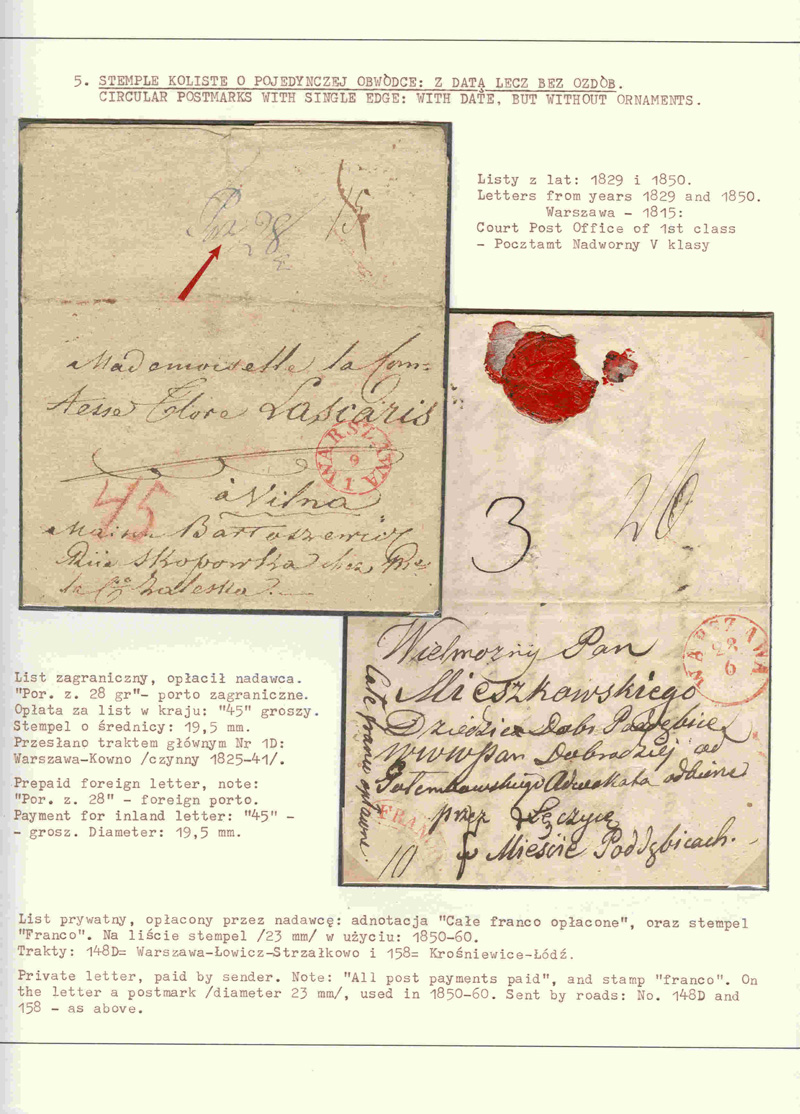 5. STEMPLE KOLISTE O POJEDYNCZEJ OBWÒDCE: Z DATĄ LECZ BEZ OZDÒB.
CIRCULAR POSTMARKS WITH SINGLE EDGE: WITH DATE, BUT WITHOUT ORNAMENTS.
Listy z lat: 1829 i 1850.
Letters from years 1829 and 1850.
Warszawa - 1815:
Court Post Office of 1st class
- Pocztamt Nadworny V klasy
15
28
Mademoiselle la Com=
tesse Flore Lascaris
WARSZAWA
9
1
45
à Vilna
Bartoszewicz
Skopowka
Zaleska.
3
26
WARSZAWA
23
6
Wielmozny Pan
Mieszkowskiego
Dziedzic Dobr Poddębice
WWWPan Dobrodziej od
Gołembowskiego Adwokata odbiera
przez Łęczycę
w Mieście Poddębicach.
Całe franco opłacone
FRAN
10
List zagraniczny, opłacił nadawca.
"Por. z. 28 gr"- porto zagraniczne.
Opłata za list w kraju: "45" groszy.
Stempel o średnicy: 19,5 mm.
Przesłano traktem głównym Nr 1D:
Warszawa-Kowno /czynny 1825-41/.
Prepaid foreign letter, note:
"Por. z. 28" - foreign porto.
Payment for inland letter: "45" -
- grosz. Diameter: 19,5 mm.
List prywatny, opłacony przez nadawcę: adnotacja "Całe franco opłacone", oraz stempel
"Franco". Na liście stempel /23 mm/ w użyciu: 1850-60.
Trakty: 148D= Warszawa-Łowicz-Strzałkowo i 158= Krośniewice-Łódź.
Private letter, paid by sender. Note: "All post payments paid", and stamp "franco". On
the letter a postmark /diameter 23 mm/, used in 1850-60. Sent by roads: No. 148D and
158 - as above.